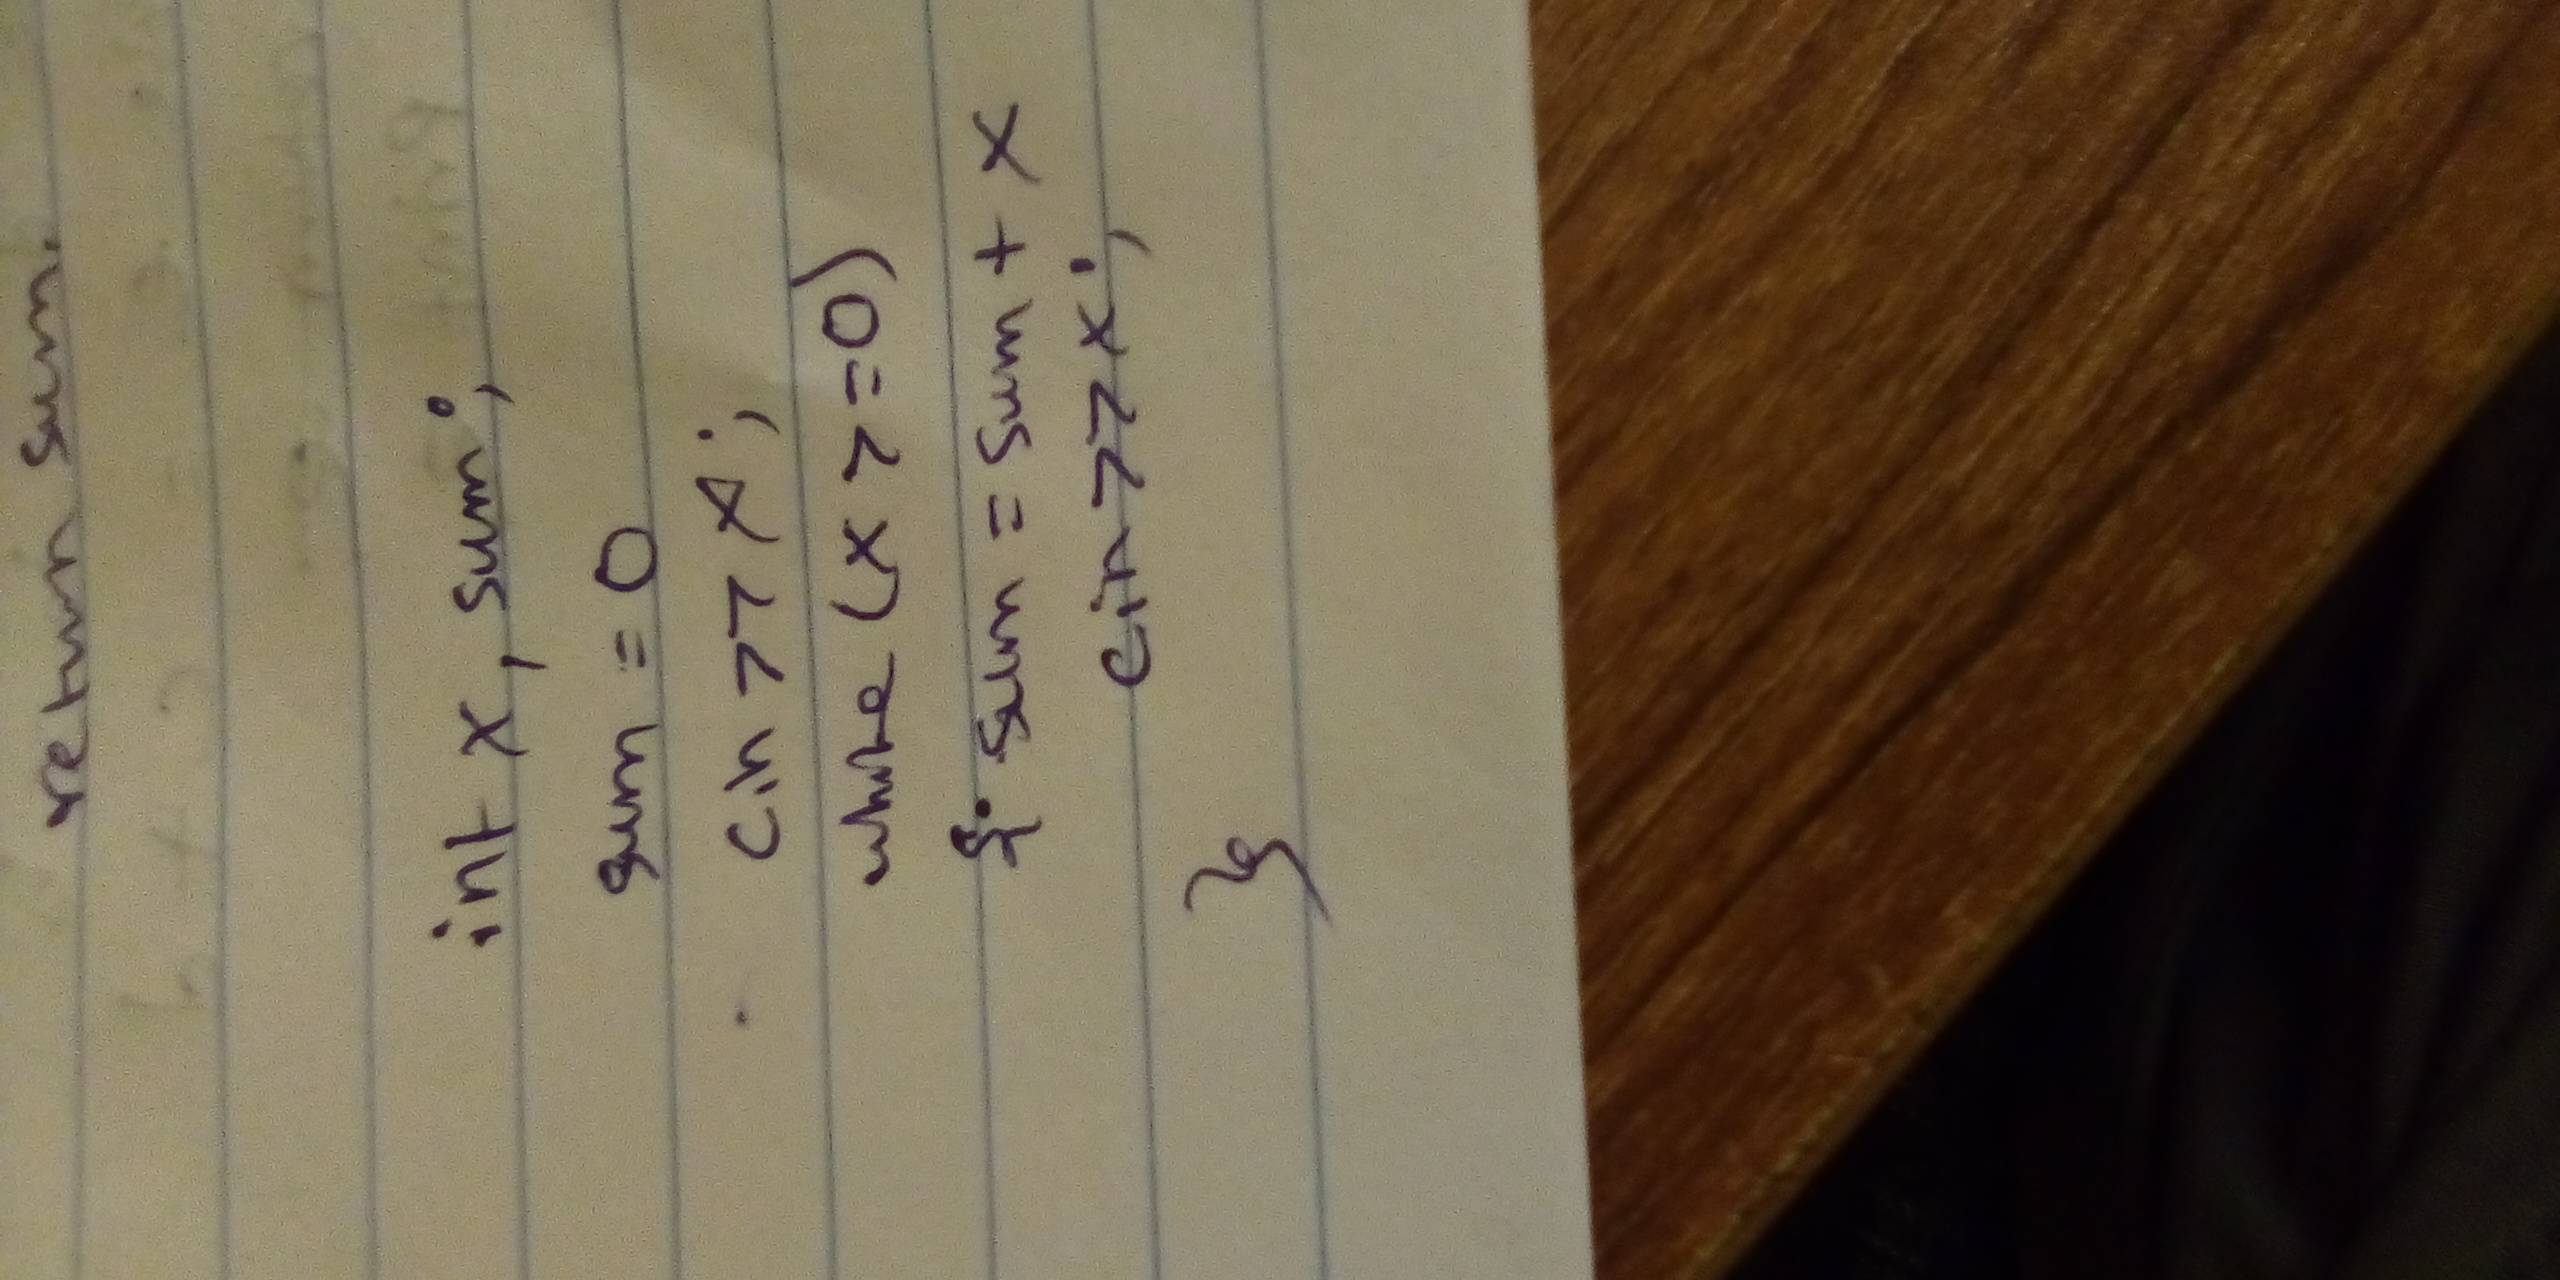 return sum.
int x, sum;
sum = 0
cin >> x;
while (x >= 0)
{ sum = sum + x
cin >> x;
}